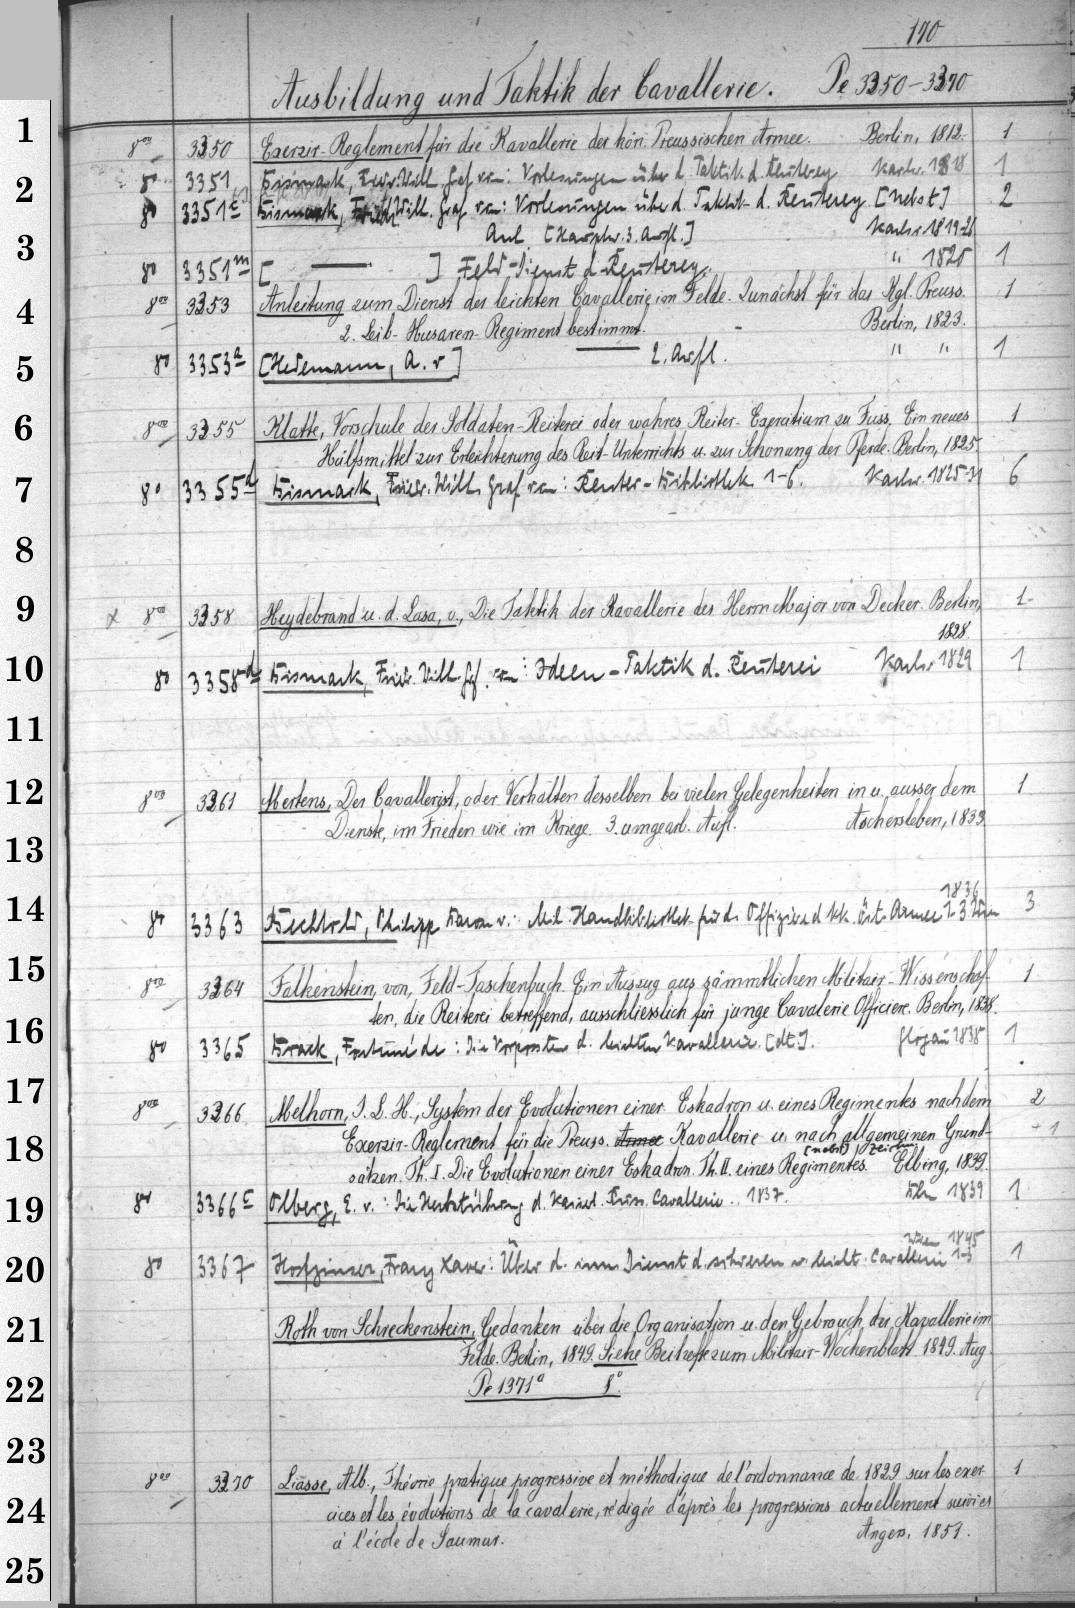 190
Ausbildung und Taktik der Cavallerie. Pe 3350-3370
8vo 3350 Exerzir-Reglement für die Kavallerie der kön. Preussischen Armee. Berlin, 1812. 1
80 3351 Bismark, Friedr. Will. Graf von: Vorlesungen über d. Taktik d. Reuterey Karlsr. 1818 1
80 3351c Bismark, Friedr. Will. Graf von: Vorlesungen über d. Taktik d. Reuterey [Nebst] 2
Anl. [Karlsr. 3. Aufl.] Karlsr. 1819-21
80 3351m [ — ] Feld-Dienst d. Reuterey. " 1820 1
8vo 3353 Anleitung zum Dienst der leichten Cavallerie im Felde. Zunächst für das Kgl. Preuss. 1
2. Leib-Husaren-Regiment bestimmt. Berlin, 1823.
80 3353a [Hedemann, A. v] — 2. Aufl. " " 1
8vo 3355 Klatte, Vorschule der Soldaten-Reiterei oder wahres Reiter-Exercitium zu Fuss. Ein neues 1
Hülfsmittel zur Erleichterung des Reit-Unterrichts u. zur Schonung der Pferde. Berlin, 1825.
80 3355d Bismark, Friedr. Will. Graf von: Reuter-Bibliothek 1-6. Karlsr. 1825-31 6
x 8vo 3358 Heydebrand u. d. Lasa, v., Die Taktik der Kavallerie des Herrn Major von Decker. Berlin, 1
1828.
80 3358d Bismark, Friedr. Will. Gf. von: Ideen-Taktik d. Reuterei Karlsr. 1829 1
8vo 3361 Mertens, Der Cavallerist, oder Verhalten desselben bei vielen Gelegenheiten in u. ausser dem 1
Dienste, im Frieden wie im Kriege. 3. umgearb. Aufl. Aschersleben, 1833.
1836
80 3363 Bechtold, Philipp Baron v.: Mil. Handbibliothek für d. Offiziere d. kk. öst. Armee 3
8vo 3364 Falkenstein, von, Feld-Taschenbuch. Ein Auszug aus sämmtlichen Militair-Wissenschaf- 1
ten, die Reiterei betreffend, ausschliesslich für junge Cavalerie Officiere. Berlin, 1838.
80 3365 Brack, Fortuné de: Die Vorposten d. leichten Kavallerie. [dt.]. Glogau 1838 1
8vo 3366 Melhorn, J. L. H., System der Evolutionen einer Eskadron u. eines Regimentes nach dem 2
Exerzir-Reglement für die Preuss. Armee Kavallerie u. nach allgemeinen Grund- + 1
(nebst) Zeichn.
sätzen. Th. I. Die Evolutionen einer Eskadron. Th. II. eines Regimentes. Elbing, 1839.
80 3366c Olberg, E. v.: Die Herbstübung d. Kaiserl. Russ. Cavallerie. 1837. Bln 1839 1
Wien 1845
80 3367 Hofzinser, Franz Xaver: Über d. innern Dienst d. schweren u. leicht. Cavallerie 1-3 1
Roth von Schreckenstein, Gedanken über die Organisation u. den Gebrauch der Kavallerie im
Felde. Berlin, 1849. Siehe Beihefte zum Militair-Wochenblatt 1849. Aug.
Pe 1371a 8°.
8vo 3370 Liasse, Alb., Théorie pratique progressive et méthodique de l'ordonnance de 1829 sur les exer- 1
cices et les évolutions de la cavalerie, rédigée d'après les progressions actuellement suivies
à l'école de Saumur. Angers, 1851.
1
2
3
4
5
6
7
8
9
10
11
12
13
14
15
16
17
18
19
20
21
22
23
24
25